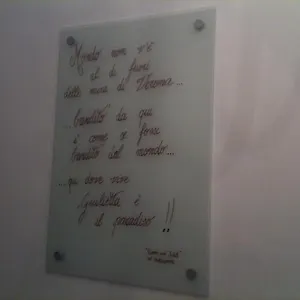 Mondo non v'è
al di fuori
delle mura di Verona...
...bandito da qui
è come se fossi
bandito dal mondo...
...qui dove vive
Giulietta è
il paradiso!!